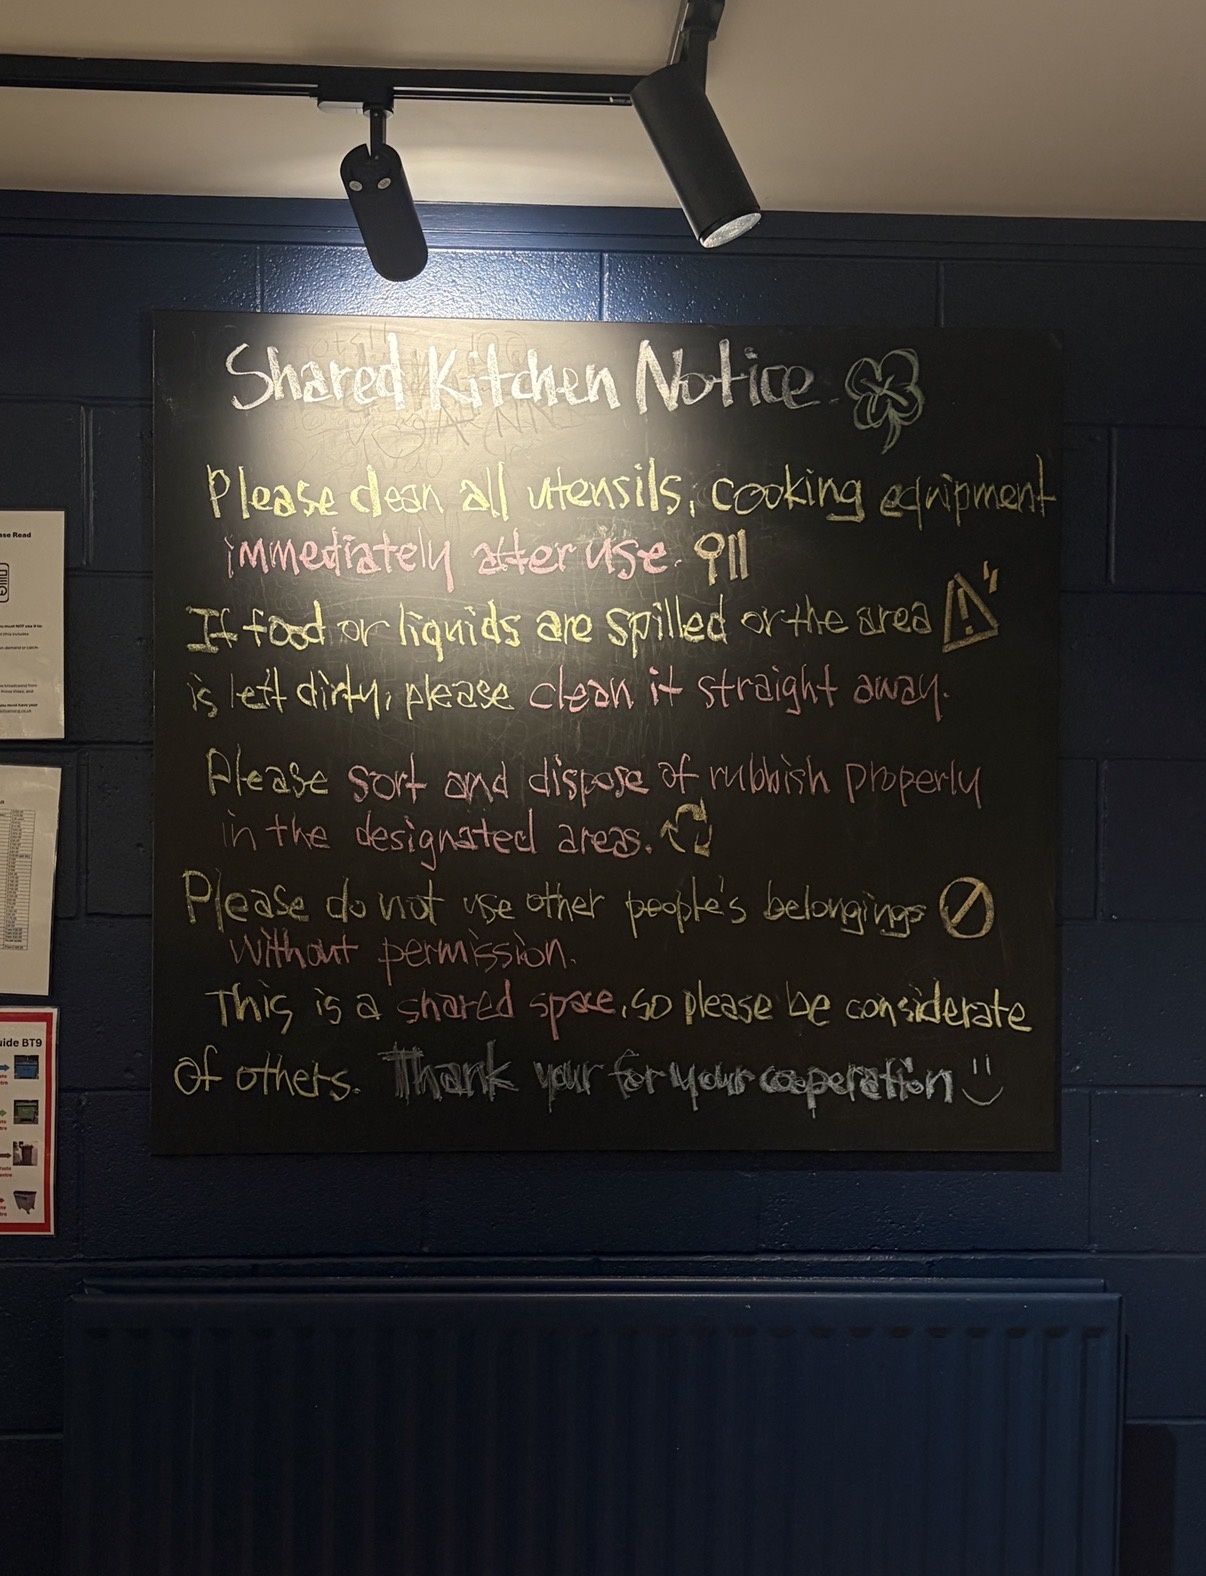 Shared Kitchen Notice
Please clean all utensils, cooking equipment
immediately after use.
If food or liquids are spilled or the area
is left dirty, please clean it straight away.
Please sort and dispose of rubbish properly
in the designated areas.
Please do not use other people's belongings
without permission.
This is a shared space, so please be considerate
of others. Thank your for your cooperation
ase Read
uide BT9